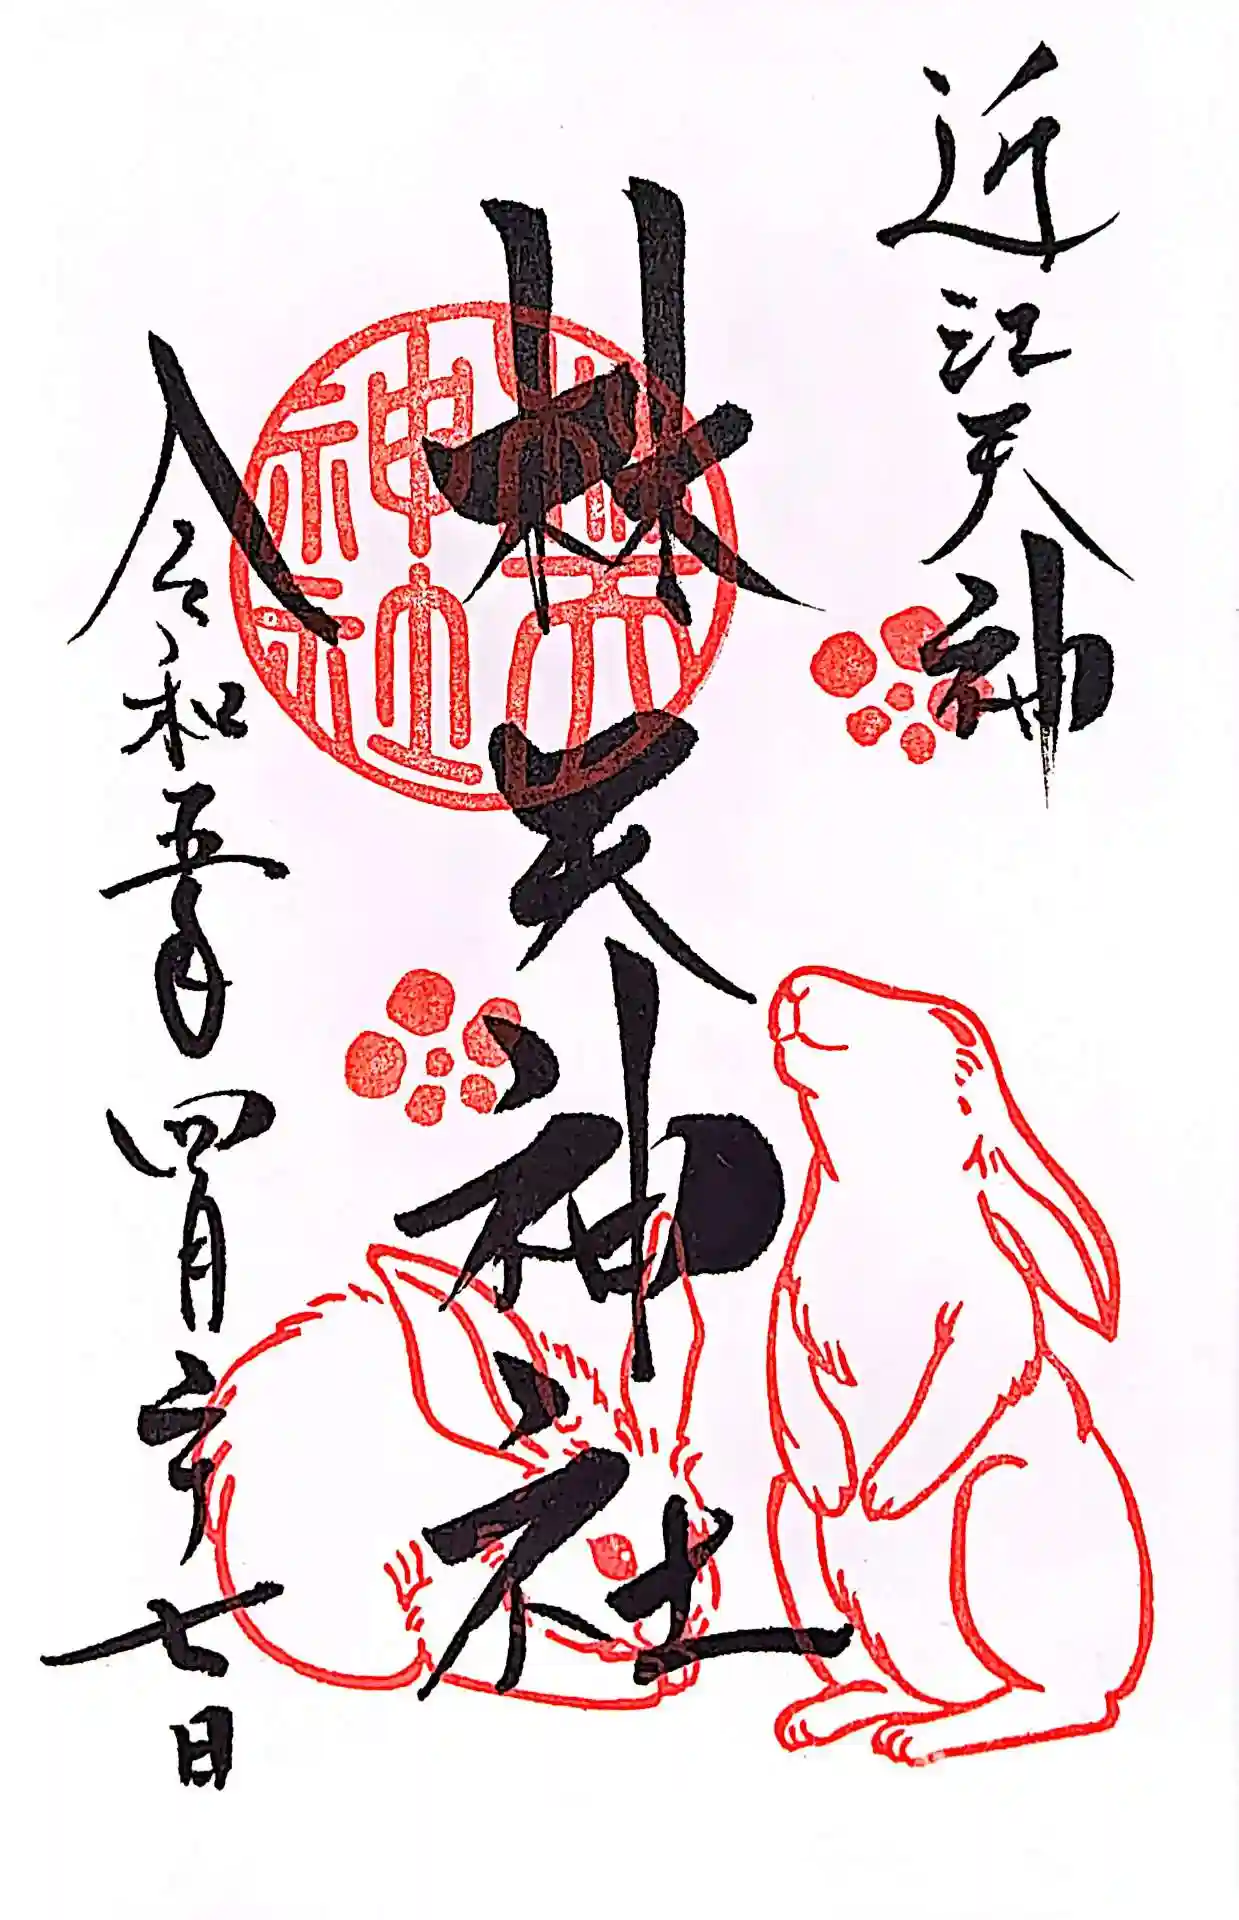 近江天神
林天神社
令和五年四月二十七日
林天神社